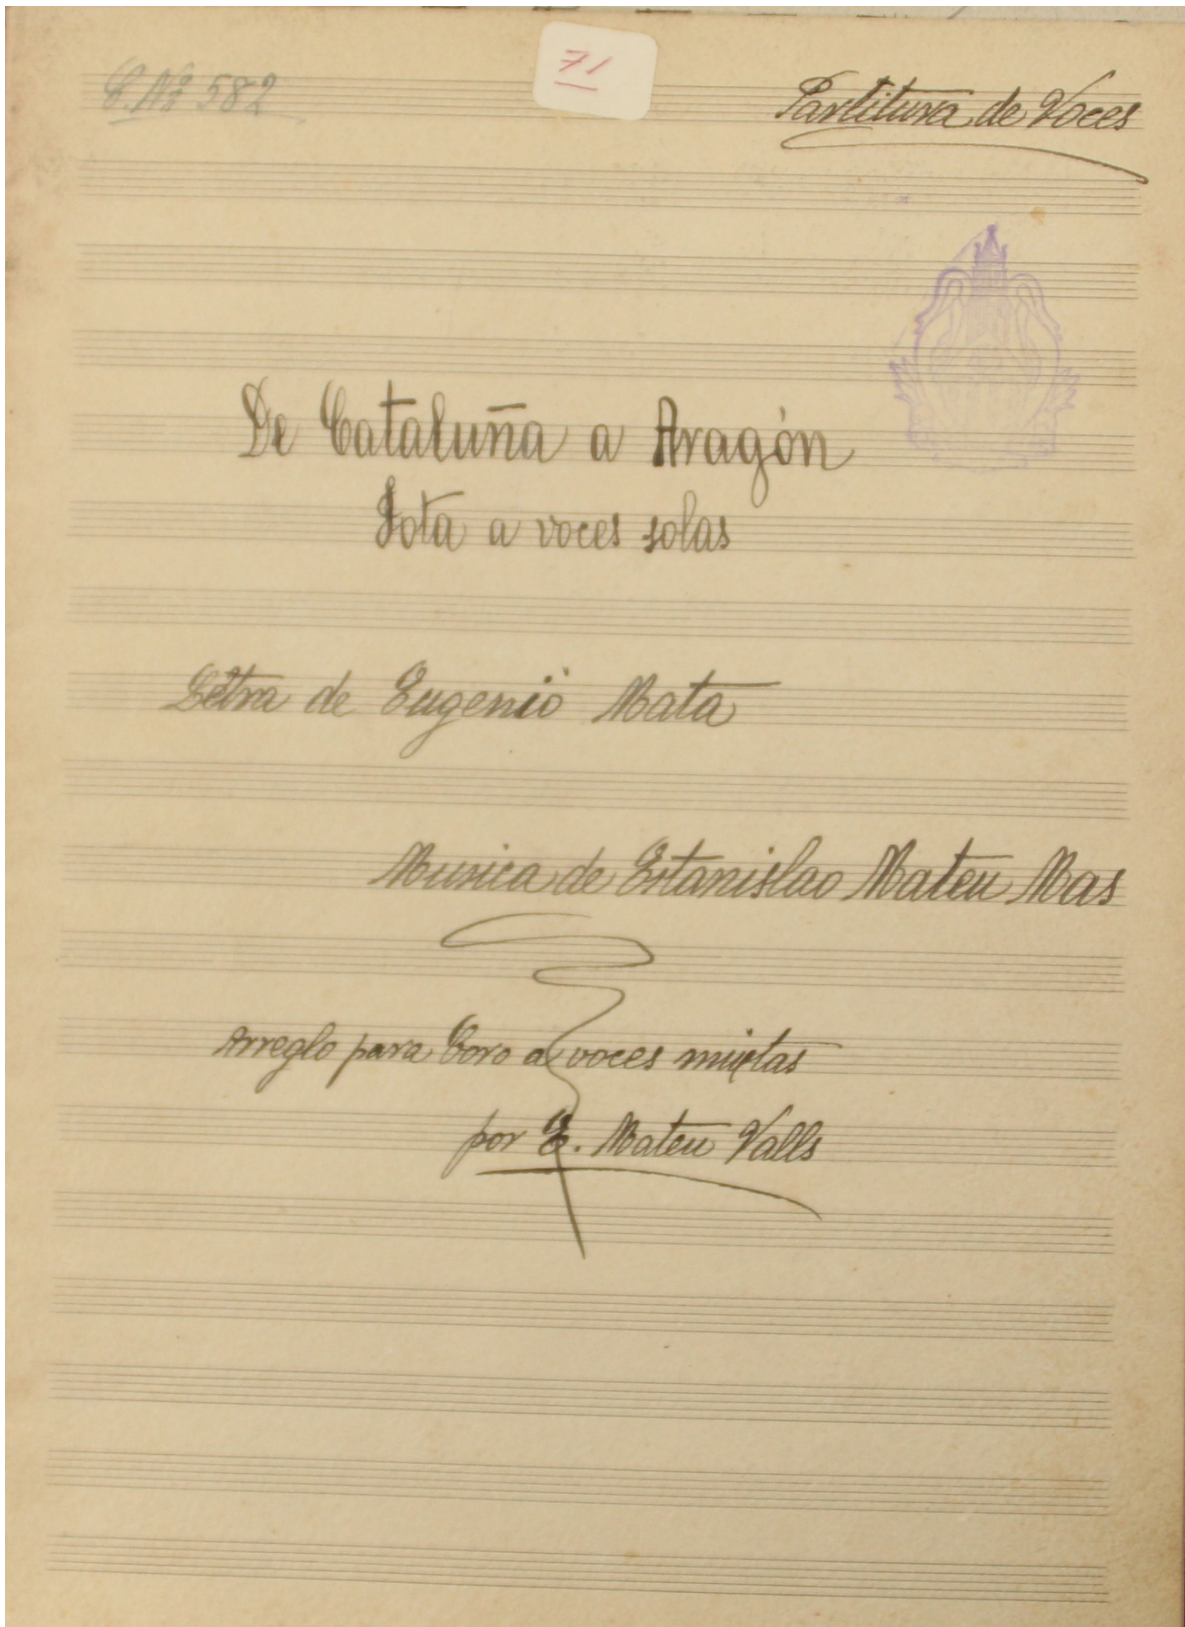 C. Nº 582
71
Partitura de Voces
De Cataluña a Aragón
Jota a voces solas
Letra de Eugenio Mata
Musica de Estanislao Mateu Mas
Arreglo para Coro a voces mixtas
por E. Mateu Valls